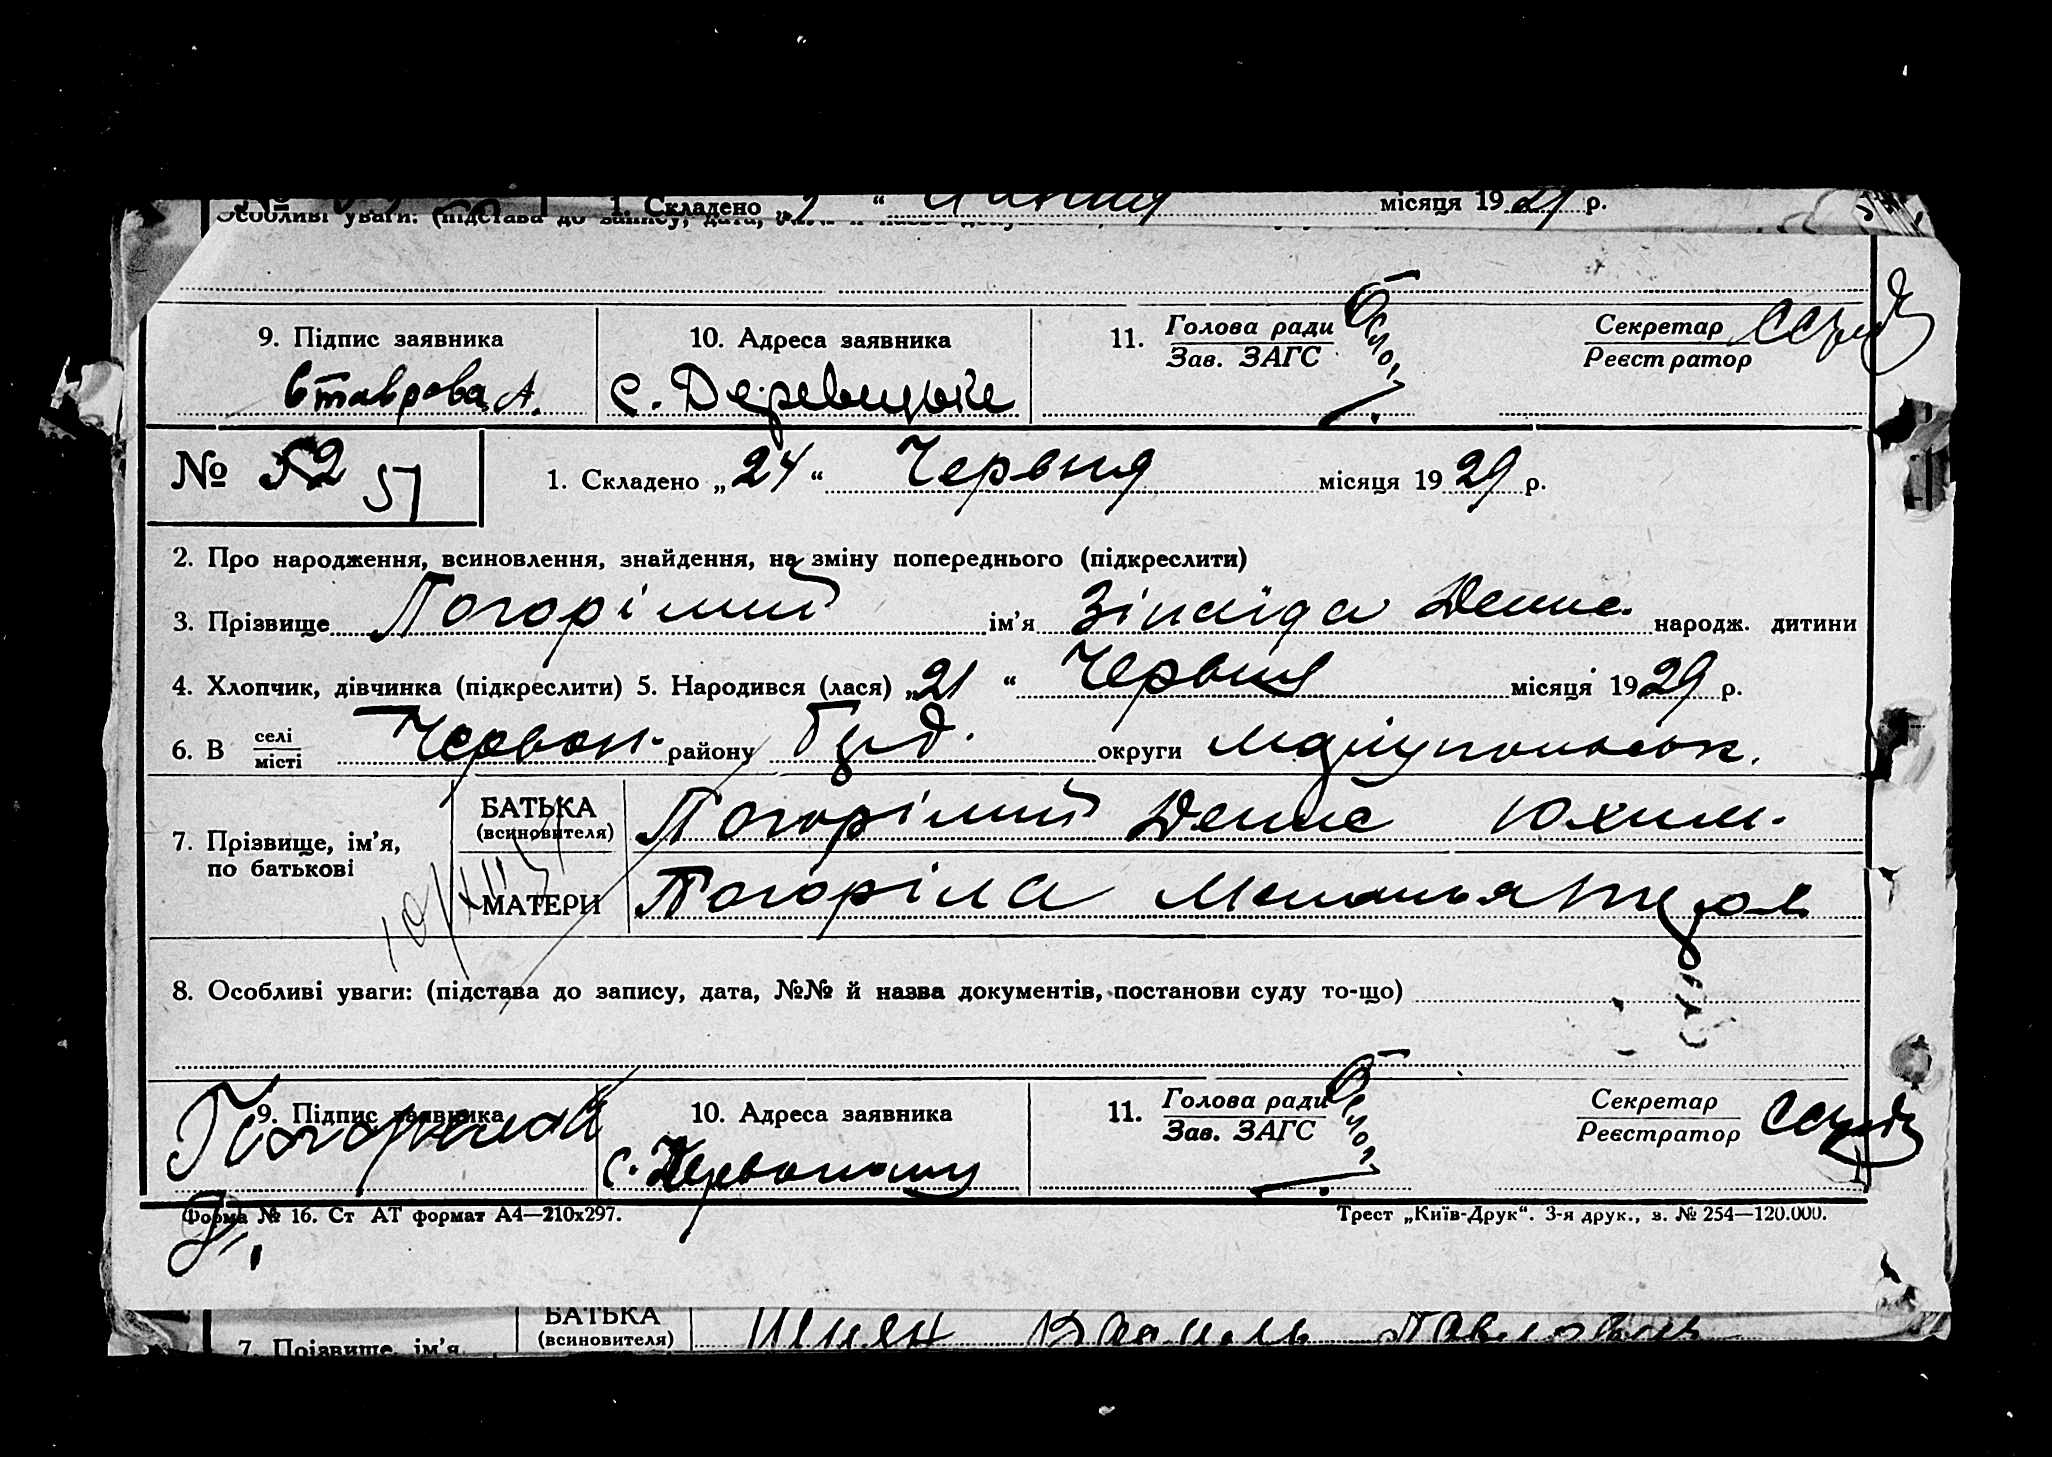 1. Складено „ “ місяця 1929 р.
Особливі уваги: (підстава до запису, дата,
9. Підпис заявника 10. Адреса заявника 11. Голова ради Зав. ЗАГС Секретар Реєстратор
Ставрова А. с. Деревицьке
№ 52 51 1. Складено „24“ Червня місяця 1929 р.
2. Про народження, всиновлення, знайдення, на зміну попереднього (підкреслити)
3. Прізвище Погорілий ім'я Зінаїда Денис. народж. дитини
4. Хлопчик, дівчинка (підкреслити) 5. Народився (лася) „21“ Червня місяця 1929 р.
6. В селі місті Червон. району округи
7. Прізвище, ім'я, по батькові
БАТЬКА (всиновителя) Погорілий Денис Юхим.
МАТЕРИ Погоріла Меланья
8. Особливі уваги: (підстава до запису, дата, №№ й назва документів, постанови суду то-що)
9. Підпис заявника 10. Адреса заявника 11. Голова ради Зав. ЗАГС Секретар Реєстратор
с.
Форма № 16. Ст АТ формат А4—210х297. Трест „Київ-Друк“. 3-я друк., з. № 254—120.000.
БАТЬКА
7. Прізвище, ім'я (всиновителя)